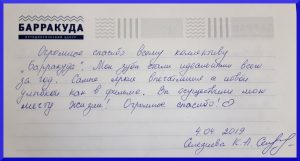 БАРРАКУДА
ОРТОДОНТИЧЕСКИЙ ЦЕНТР
Огромное спасибо всему коллективу
"Барракуда". Мои зубы стали идеальными всего
за год. Самые яркие впечатления и новой
улыбкой как в фильме. Вы осуществили мою
мечту жизни! Огромное спасибо!
4.04 2019
К.А.